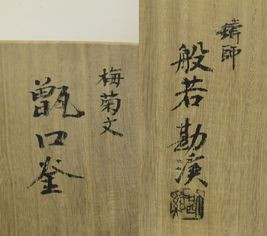 鋳師
般若勘渓
梅菊文
甑口釜